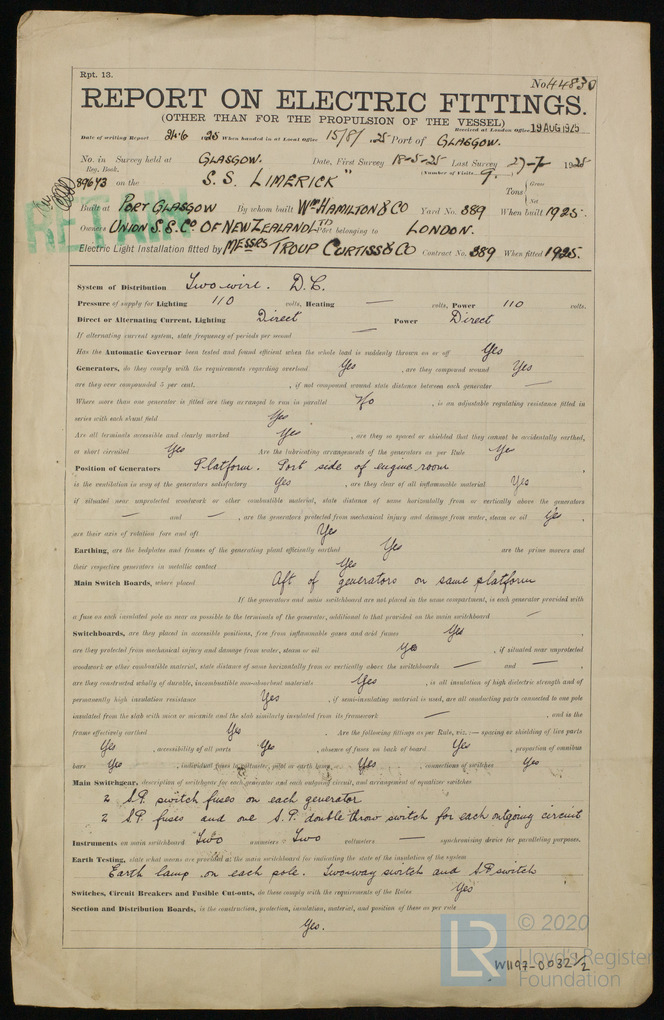 Rpt. 13.
No. 44830
REPORT ON ELECTRIC FITTINGS.
(OTHER THAN FOR THE PROPULSION OF THE VESSEL)
Received at London Office 19 AUG 1925
Date of writing Report 24.6 1925 When handed in at Local Office 15/8/ .25 Port of GLASGOW.
No. in Survey held at GLASGOW. Date, First Survey 18-5-25 Last Survey 27-7- 1925
Reg. Book. (Number of Visits 9.)
89673 on the S.S. LIMERICK" Tons { Gross
Net
Built at PORT GLASGOW By whom built WM HAMILTON & CO Yard No. 389 When built 1925.
RETAIN
Owners UNION S.S. CO. OF NEW ZEALAND LTD Port belonging to LONDON.
Electric Light Installation fitted by MESSRS TROUP CURTISS & CO Contract No. 389 When fitted 1925.
System of Distribution Two wire. D.C.
Pressure of supply for Lighting 110 volts, Heating — volts, Power 110 volts.
Direct or Alternating Current, Lighting Direct Power Direct
If alternating current system, state frequency of periods per second —
Has the Automatic Governor been tested and found efficient when the whole load is suddenly thrown on or off Yes
Generators, do they comply with the requirements regarding overload Yes , are they compound wound Yes
are they over compounded 5 per cent. , if not compound wound state distance between each generator —
Where more than one generator is fitted are they arranged to run in parallel No , is an adjustable regulating resistance fitted in
series with each shunt field Yes
Are all terminals accessible and clearly marked Yes , are they so spaced or shielded that they cannot be accidentally earthed,
or short circuited Yes Are the lubricating arrangements of the generators as per Rule Yes
Position of Generators Platform. Port side of engine room
is the ventilation in way of the generators satisfactory Yes , are they clear of all inflammable material Yes
if situated near unprotected woodwork or other combustible material, state distance of same horizontally from or vertically above the generators
— and — , are the generators protected from mechanical injury and damage from water, steam or oil Yes ,
are their axis of rotation fore and aft Yes
Earthing, are the bedplates and frames of the generating plant efficiently earthed Yes are the prime movers and
their respective generators in metallic contact Yes
Main Switch Boards, where placed Aft of generators on same platform
If the generators and main switchboard are not placed in the same compartment, is each generator provided with
a fuse on each insulated pole as near as possible to the terminals of the generator, additional to that provided on the main switchboard —
Switchboards, are they placed in accessible positions, free from inflammable gases and acid fumes Yes ,
are they protected from mechanical injury and damage from water, steam or oil Yes , if situated near unprotected
woodwork or other combustible material, state distance of same horizontally from or vertically above the switchboards — and — ,
are they constructed wholly of durable, incombustible non-absorbent materials Yes , is all insulation of high dielectric strength and of
permanently high insulation resistance Yes , if semi-insulating material is used, are all conducting parts connected to one pole
insulated from the slab with mica or micanite and the slab similarly insulated from its framework — , and is the
frame effectively earthed Yes Are the following fittings as per Rule, viz.:— spacing or shielding of live parts
Yes , accessibility of all parts Yes , absence of fuses on back of board Yes , proportion of omnibus
bars Yes , individual fuses to voltmeter, pilot or earth lamp Yes , connections of switches Yes
Main Switchgear, description of switchgear for each generator and each outgoing circuit, and arrangement of equalizer switches
2 S.P. switch fuses on each generator
2 S.P. fuses and one S.P. double throw switch for each outgoing circuit
Instruments on main switchboard Two ammeters Two voltmeters — synchronising device for paralleling purposes.
Earth Testing, state what means are provided at the main switchboard for indicating the state of the insulation of the system
Earth lamp on each pole. Two way switch and S.P. switch
Switches, Circuit Breakers and Fusible Cut-outs, do these comply with the requirements of the Rules Yes
Section and Distribution Boards, is the construction, protection, insulation, material, and position of these as per rule
Yes.
© 2020
LR Lloyd's Register
Foundation
W1197-0032 1/2